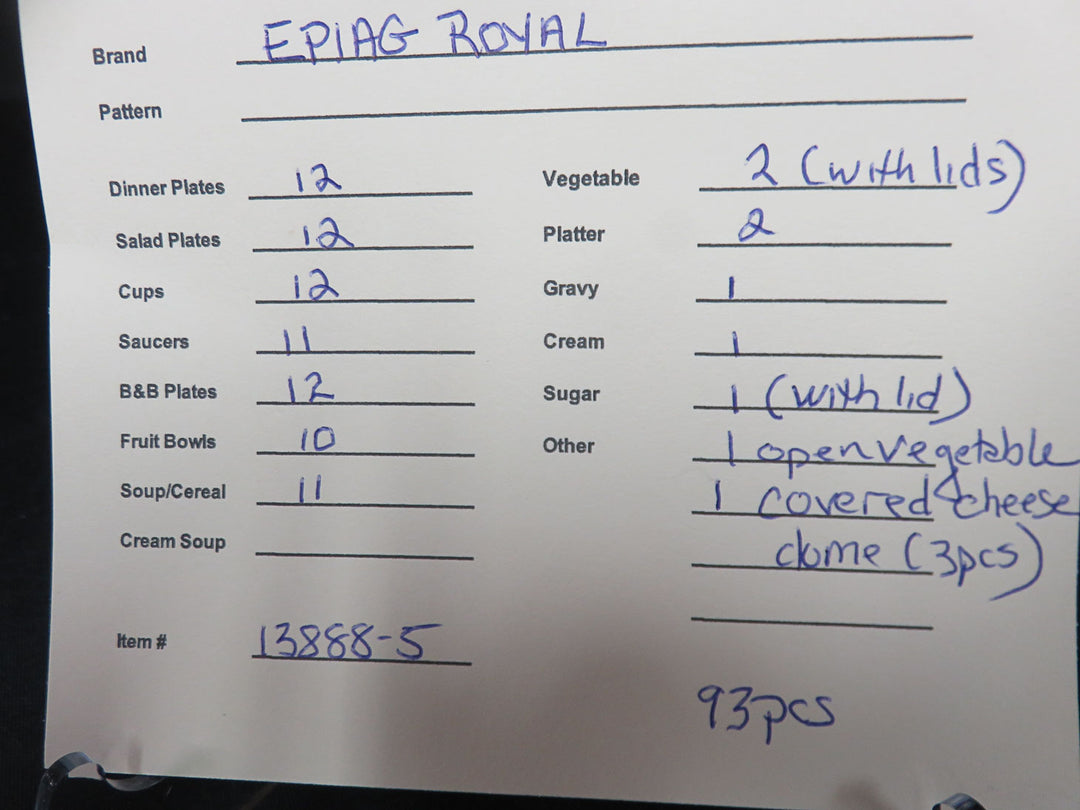 Brand EPIAG ROYAL
Pattern
Dinner Plates 12
Salad Plates 12
Cups 12
Saucers 11
B&B Plates 12
Fruit Bowls 10
Soup/Cereal 11
Cream Soup
Item # 13888-5
Vegetable 2 (with lids)
Platter 2
Gravy 1
Cream 1
Sugar 1 (with lid)
Other 1 open vegetable
1 covered cheese
dome (3pcs)
93pcs